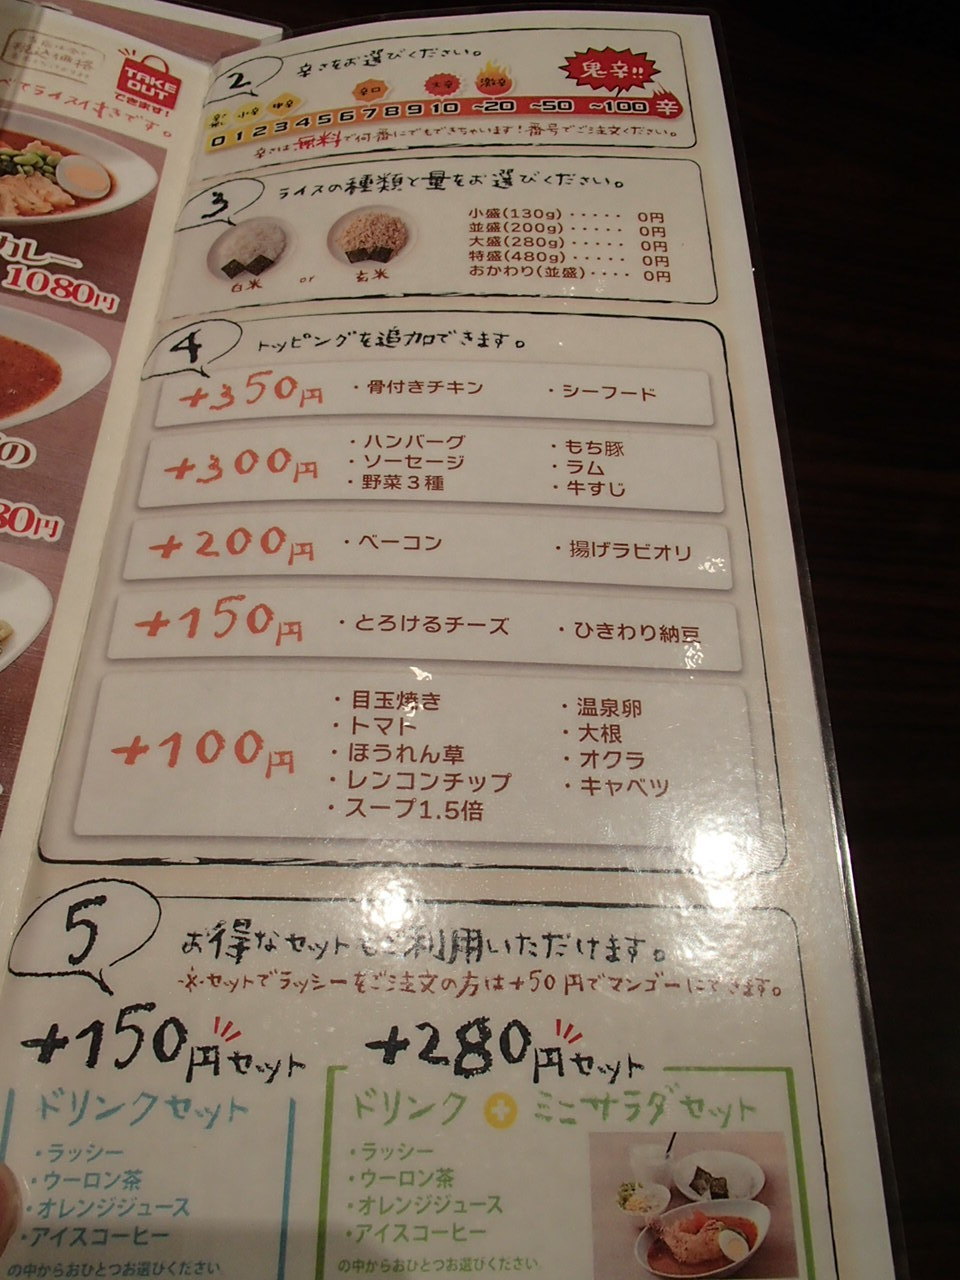 税込価格
TAKE OUT
できます!
ライス付きです。
カレー
1080円
の
80円
2 辛さをお選びください。
小辛 中辛 辛口 大辛 激辛 鬼辛!!
0 1 2 3 4 5 6 7 8 9 10 ~20 ~50 ~100 辛
辛さは無料で何番にでもできちゃいます!番号でご注文ください。
3 ライスの種類と量をお選びください。
白米 or 玄米
小盛(130g)・・・・・ 0円
並盛(200g)・・・・・ 0円
大盛(280g)・・・・・ 0円
特盛(480g)・・・・・ 0円
おかわり(並盛)・・・・ 0円
4 トッピングを追加できます。
+350円 ・骨付きチキン ・シーフード
+300円
・ハンバーグ ・もち豚
・ソーセージ ・ラム
・野菜3種 ・牛すじ
+200円 ・ベーコン ・揚げラビオリ
+150円 ・とろけるチーズ ・ひきわり納豆
+100円
・目玉焼き ・温泉卵
・トマト ・大根
・ほうれん草 ・オクラ
・レンコンチップ ・キャベツ
・スープ1.5倍
5 お得なセットもご利用いただけます。
※セットでラッシーをご注文の方は+50円でマンゴーにできます。
+150円セット
ドリンクセット
・ラッシー
・ウーロン茶
・オレンジジュース
・アイスコーヒー
の中からおひとつお選びください
+280円セット
ドリンク+ミニサラダセット
・ラッシー
・ウーロン茶
・オレンジジュース
・アイスコーヒー
の中からおひとつお選びください